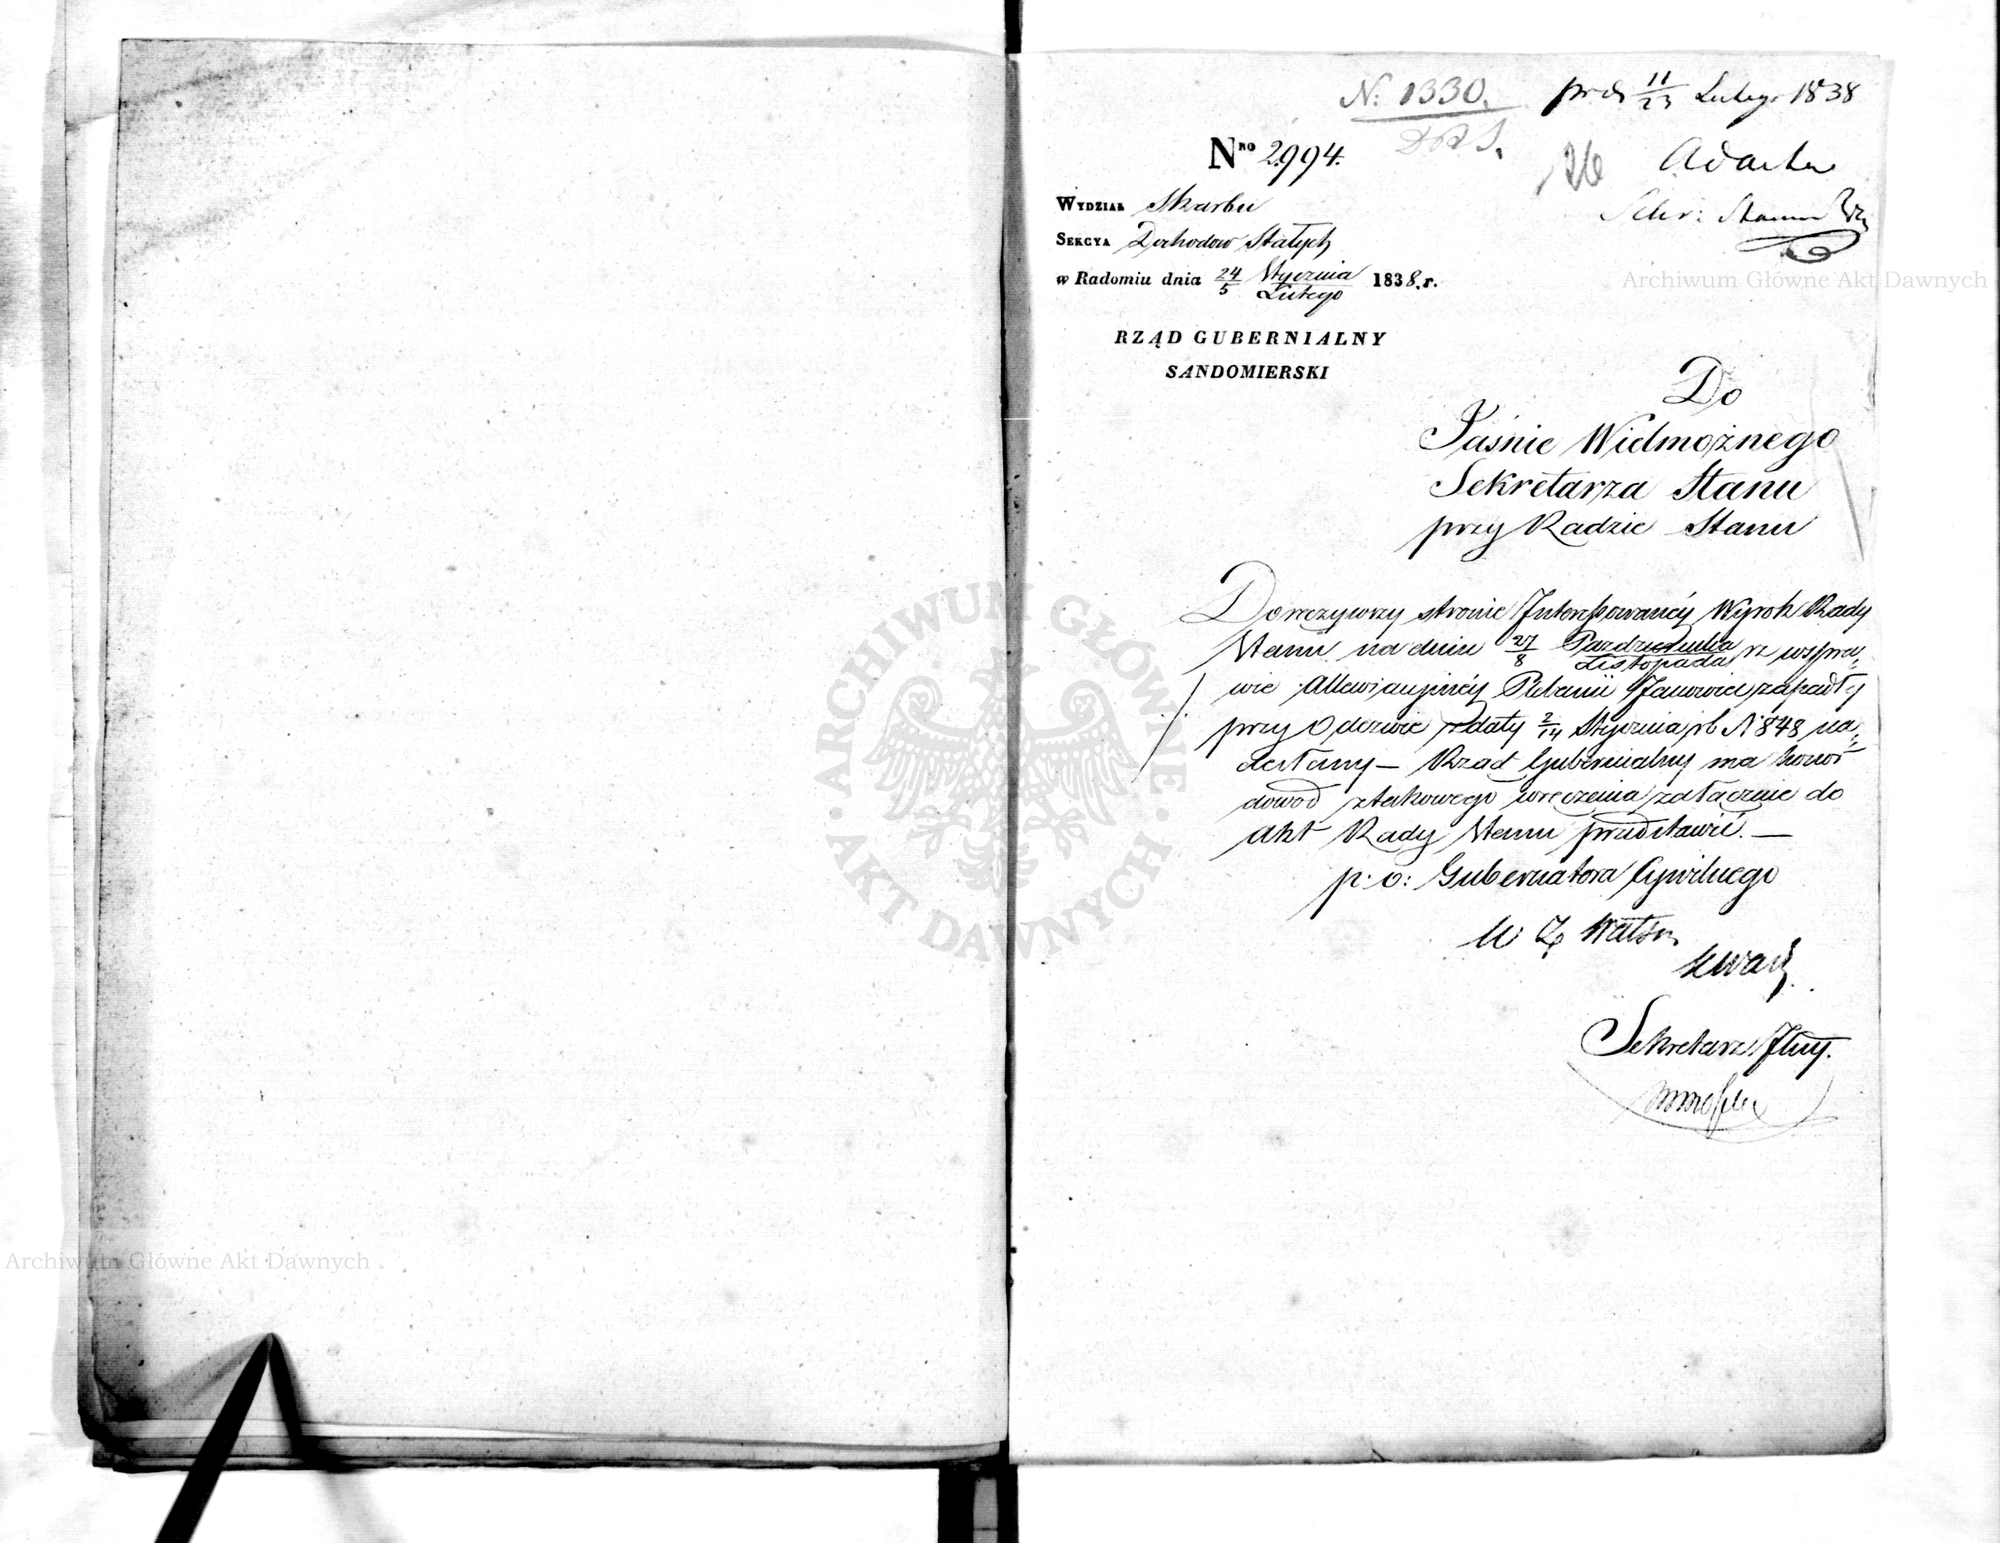 N: 1330.
prds 11/23 Lutego 1838
N.ro 2994.
ad acta
Sekr: Stanu
WYDZIAŁ Skarbu
SEKCYA Dochodow Stałych
w Radomiu dnia 24/5 Stycznia/Lutego 1838. r.
RZĄD GUBERNIALNY
SANDOMIERSKI
Do
Jaśnie Wielmożnego
Sekretarza Stanu
przy Radzie Stanu
Doręczywszy stronie Interessowanéy Wyrok Rady
Stanu na dniu 27/8 Października/Listopada rz w spra=
wie Allewiacyjnéy Plebanii Janowiec zapadły
przy Odezwie z daty 2/14 Stycznia rb N 848 na=
desłany — Rząd Gubernialny ma honor
dowod z takowego wręczenia załącznie do
Akt Rady Stanu przedstawić. —
p. o: Gubernatora Cywilnego
Sekretarz Jlny.
Archiwum Główne Akt Dawnych
ARCHIWUM GŁÓWNE
AKT DAWNYCH
Archiwum Główne Akt Dawnych